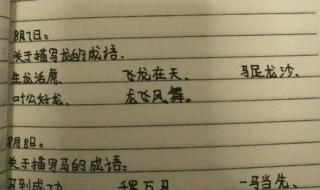 8月7日:
关于描写龙的成语、
生龙活虎、 飞龙在天、 马足龙沙、
叶公好龙、 龙飞凤舞。
8月8日。
关于描写马的成语:
马到成功、 千军万马 一马当先、